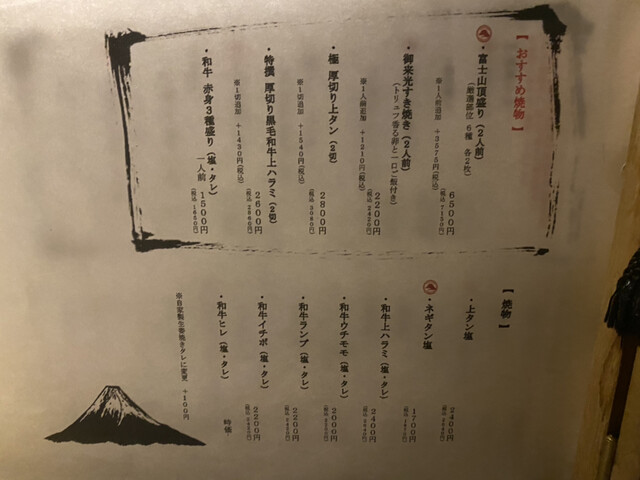 【おすすめ焼物】
・富士山頂盛り（2人前）
（厳選部位 6種 各2枚）
6500円
（税込 7150円）
※1人前追加 +3575円（税込）
・御来光すき焼き（2人前）
（トリュフ香る卵と一口ご飯付き）
2200円
（税込 2420円）
※1人前追加 +1210円（税込）
・極 厚切り上タン（2切）
2800円
（税込 3080円）
※1切追加 +1540円（税込）
・特撰 厚切り黒毛和牛上ハラミ（2切）
2600円
（税込 2860円）
※1切追加 +1430円（税込）
・和牛 赤身3種盛り（塩・タレ）
一人前 1500円
（税込 1650円）
【焼物】
・上タン塩
2400円
（税込 2640円）
・ネギタン塩
1700円
（税込 1870円）
・和牛上ハラミ（塩・タレ）
2400円
（税込 2640円）
・和牛ウチモモ（塩・タレ）
2000円
（税込 2200円）
・和牛ランプ（塩・タレ）
2200円
（税込 2420円）
・和牛イチボ（塩・タレ）
2200円
（税込 2420円）
・和牛ヒレ（塩・タレ）
時価
※自家製生姜焼きタレに変更 +100円